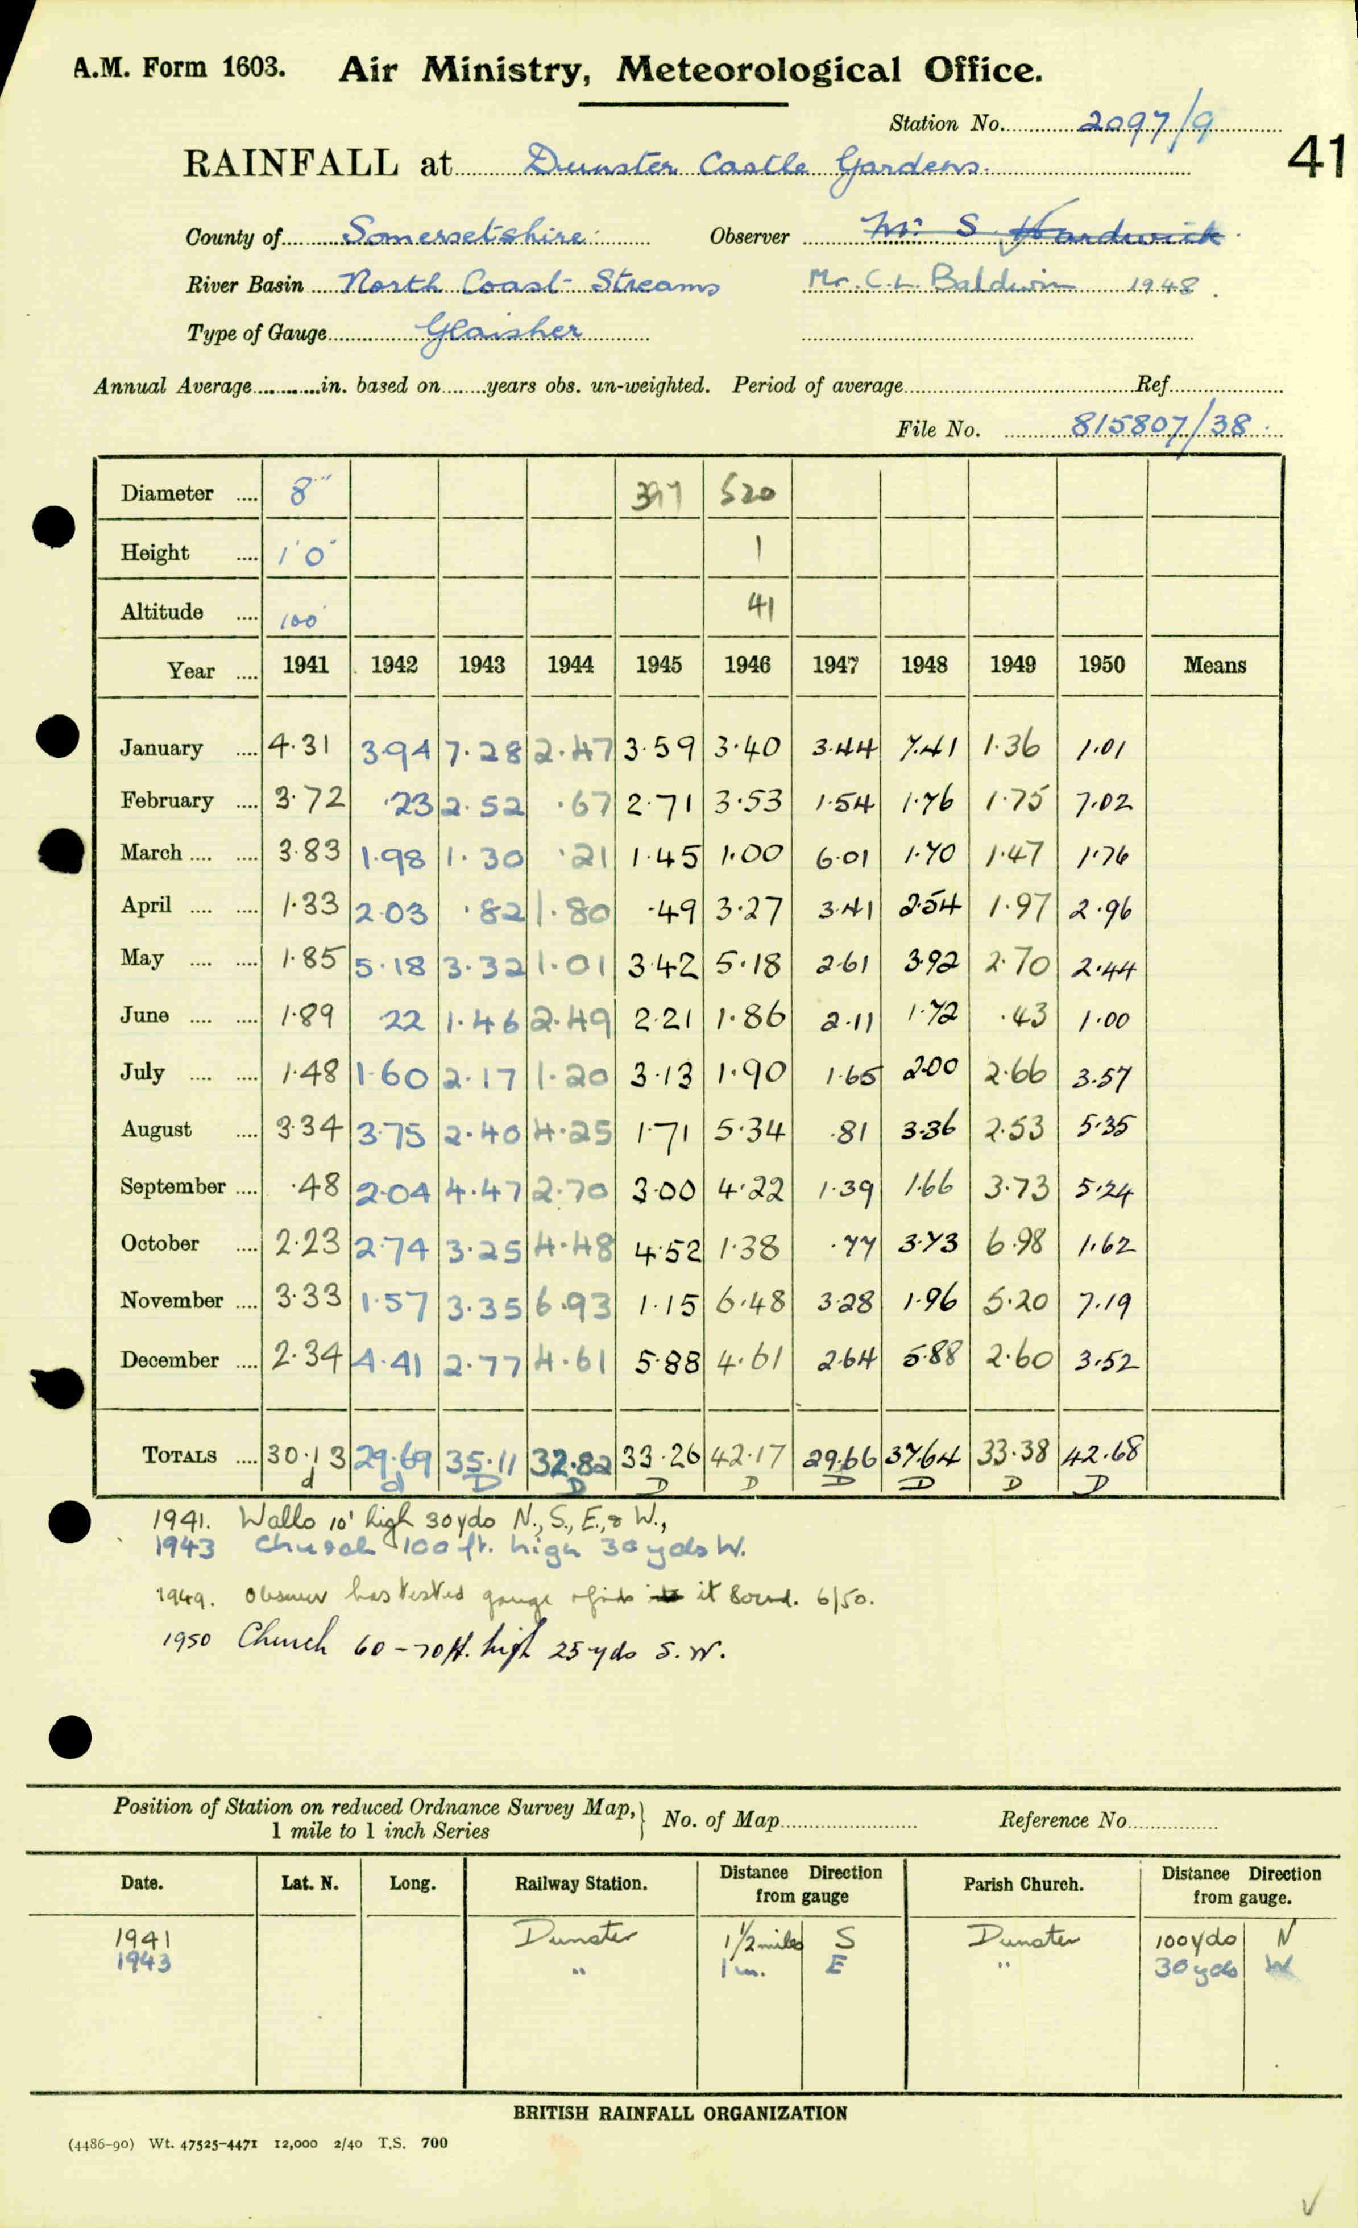 A.M. Form 1603. Air Ministry, Meteorological Office.
Station No. 2097/9
41
RAINFALL at Dunster Castle Gardens.
County of Somersetshire Observer Mr S Hardwick
River Basin North Coast Streams Mr. C.L. Baldwin 1948.
Type of Gauge Glaisher
Annual Average in. based on years obs. un-weighted. Period of average Ref
File No. 815807/38
Diameter 8" 397 520
Height 1' 0" 1
Altitude 100' 41
Year 1941 1942 1943 1944 1945 1946 1947 1948 1949 1950 Means
January 4.31 3.94 7.28 2.47 3.59 3.40 3.44 7.41 1.36 1.01
February 3.72 .23 2.52 .67 2.71 3.53 1.54 1.76 1.75 7.02
March 3.83 1.98 1.30 .21 1.45 1.00 6.01 1.70 1.47 1.76
April 1.33 2.03 .82 1.80 .49 3.27 3.41 2.54 1.97 2.96
May 1.85 5.18 3.32 1.01 3.42 5.18 2.61 3.92 2.70 2.44
June 1.89 22 1.46 2.49 2.21 1.86 2.11 1.72 .43 1.00
July 1.48 1.60 2.17 1.20 3.13 1.90 1.65 2.00 2.66 3.57
August 3.34 3.75 2.40 4.25 1.71 5.34 .81 3.36 2.53 5.35
September .48 2.04 4.47 2.70 3.00 4.22 1.39 1.66 3.73 5.24
October 2.23 2.74 3.25 4.48 4.52 1.38 .77 3.73 6.98 1.62
November 3.33 1.57 3.35 6.93 1.15 6.48 3.28 1.96 5.20 7.19
December 2.34 4.41 2.77 4.61 5.88 4.61 2.64 5.88 2.60 3.52
TOTALS 30.13 29.69 35.11 32.82 33.26 42.17 29.66 37.64 33.38 42.68
d d D D D D D D D D
1941. Walls 10' high 30yds N., S., E., & W.,
1943 Church 100 ft. high 30 yds W.
1949. Observer has tested gauge & finds it sound. 6/50.
1950 Church 60-70ft. high 25 yds S.W.
Position of Station on reduced Ordnance Survey Map, No. of Map Reference No
1 mile to 1 inch Series
Date. Lat. N. Long. Railway Station. Distance Direction from gauge Parish Church. Distance Direction from gauge.
1941 Dunster 1½ miles S Dunster 100yds N
1943 " 1 m. E " 30 yds W
BRITISH RAINFALL ORGANIZATION
(4486-90) Wt. 47525-4471 12,000 2/40 T.S. 700